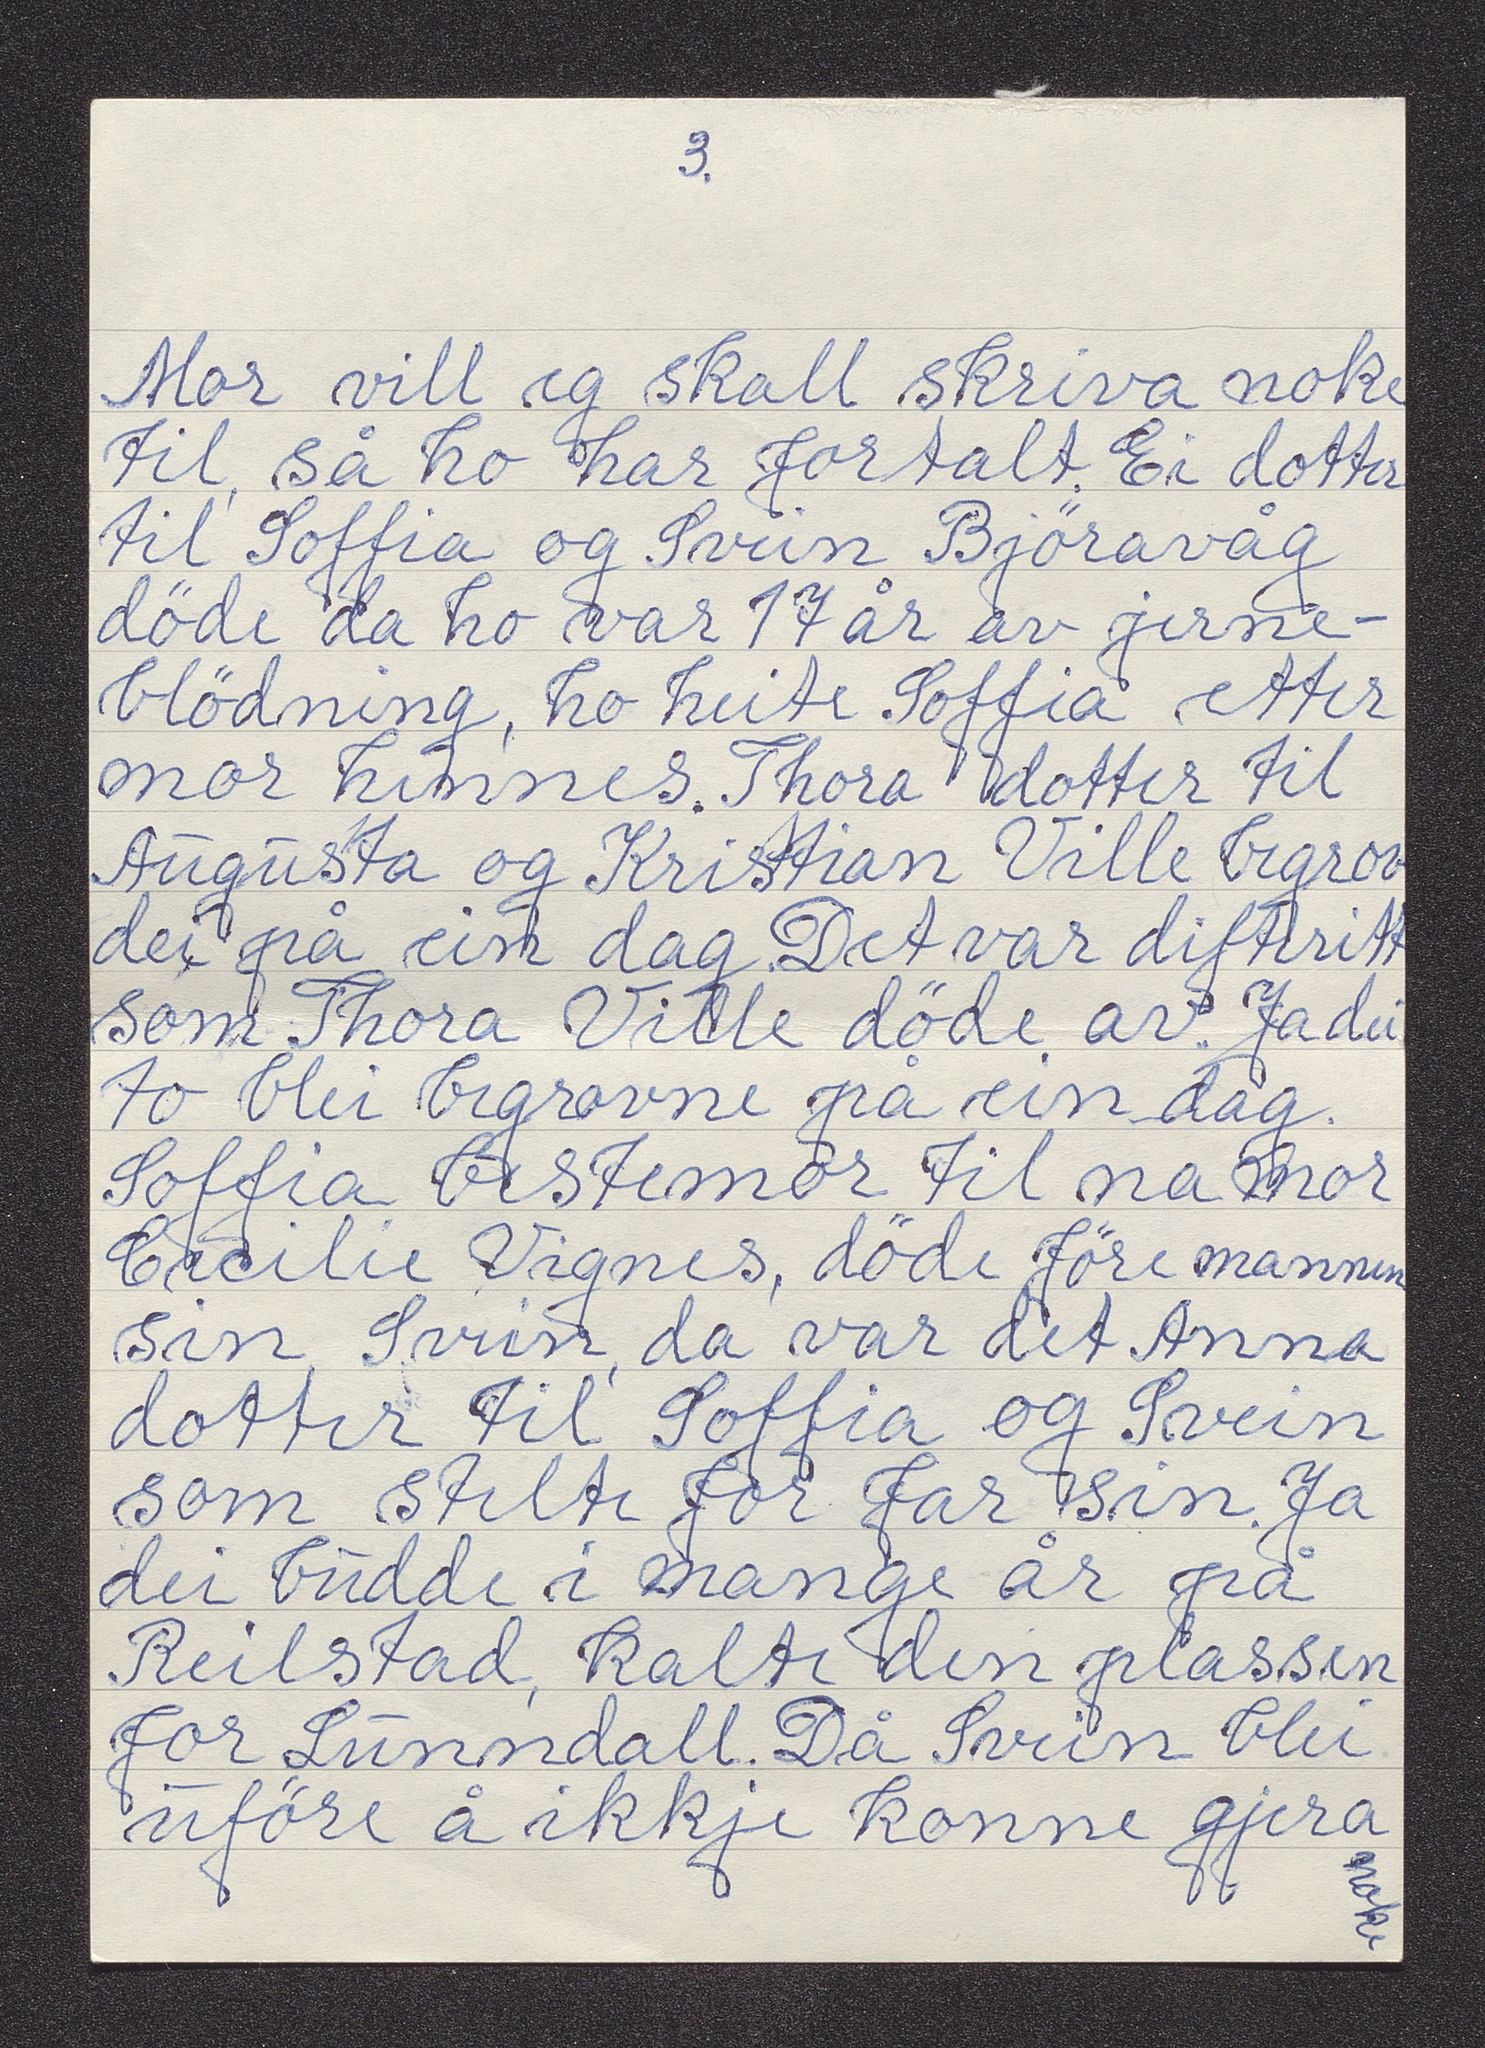 3.
Mor vill eg skall skriva noke
til, så ho har fortalt. Ei dotter
til Soffia og Svein Björavåg
döde da ho var 17 år av jerne-
blödning, ho heite Soffia etter
mor hennes. Thora dotter til
Augusta og Kristian Ville begrov
dei på ein dag. Det var difteritt
som Thora Ville döde av. Ja dei
to blei begravne på ein dag.
Soffia bestemor til na mor
Cecilie Vignes, döde före mannen
sin, Svein, da var det Anna
dotter til Soffia og Svein
som stelte for far sin. Ja
dei budde i mange år på
Reilstad, kalte den plassen
for Lunndall. Då Svein blei
uföre å ikkje konne gjera
noke